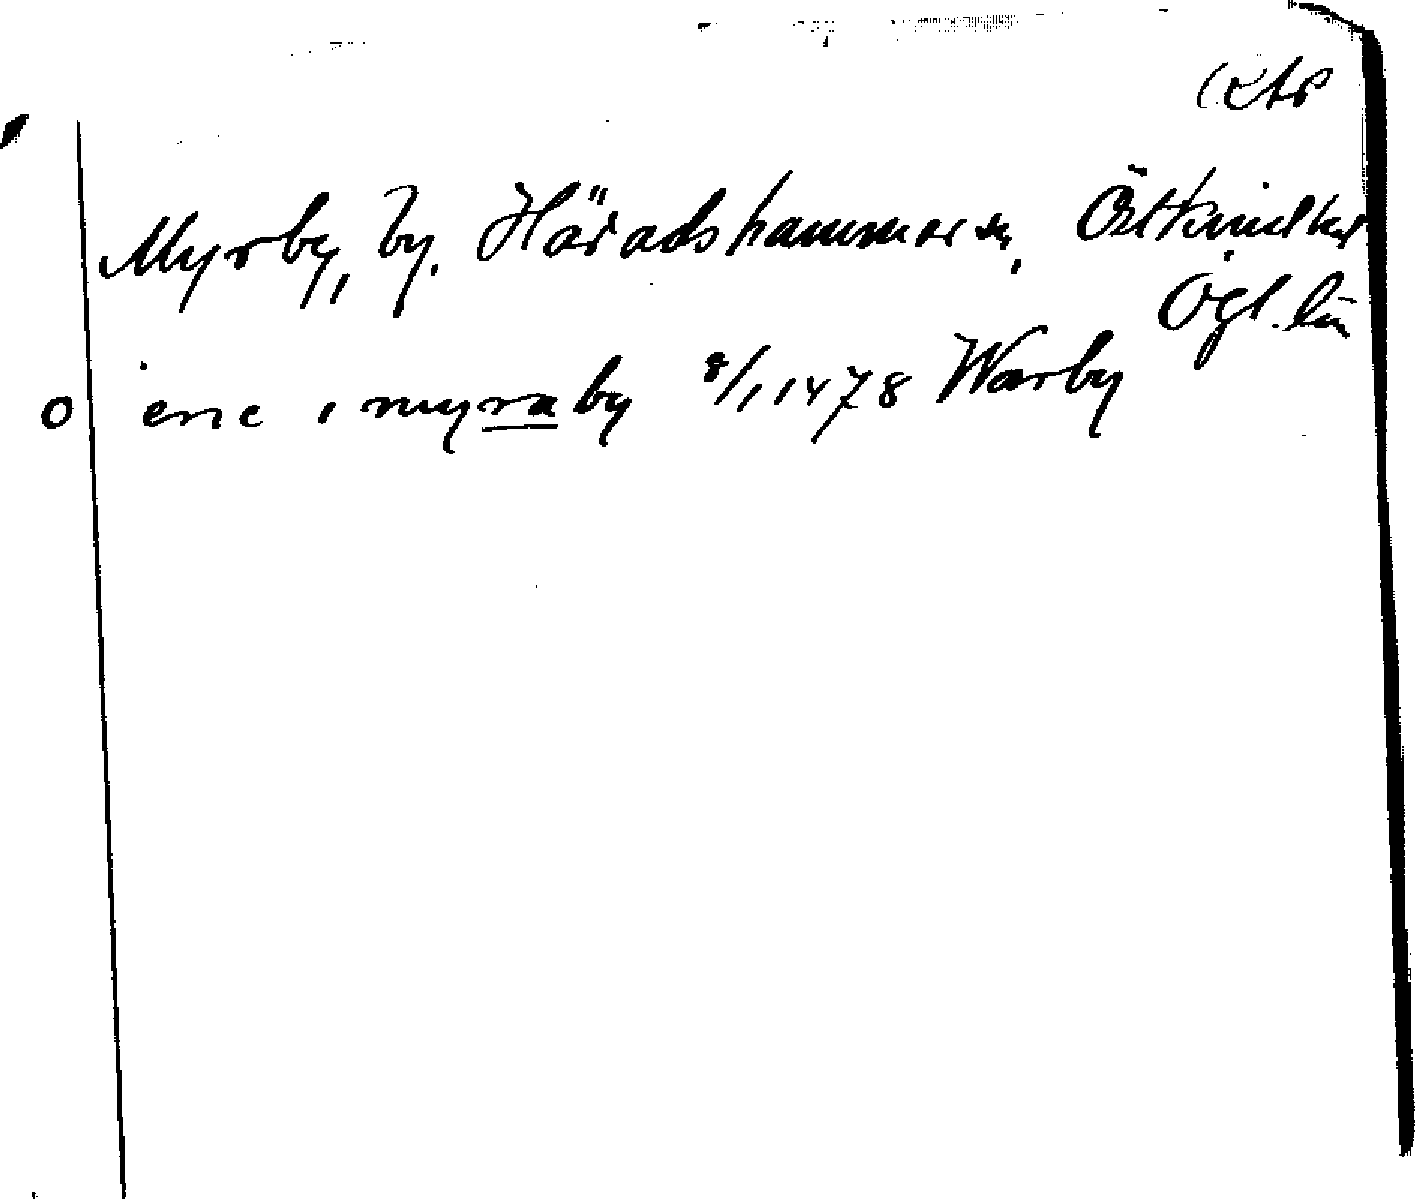 Myrby, by. Häradshammar sn, Östkinds hd
Ögl. län
O eric i myraby 8/1 1478 Warby